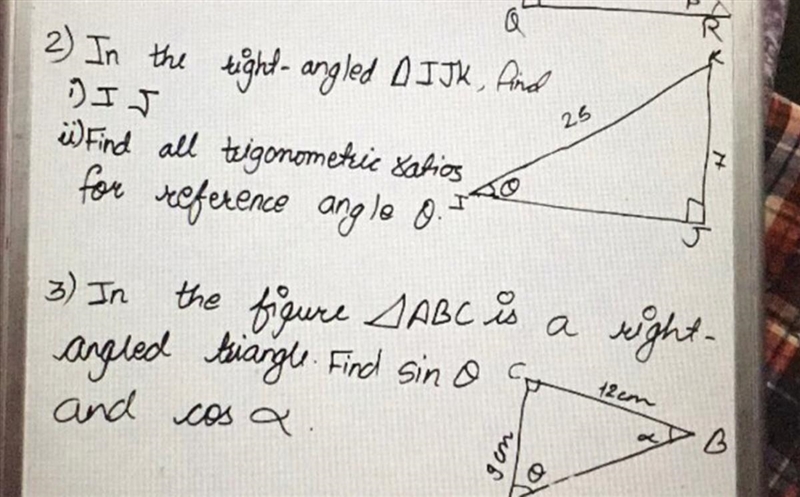 Q
R
2) In the right-angled △IJK, find
i) I J
ii) Find all trigonometric ratios
for reference angle θ.
K
25
7
θ
I
J
3) In the figure △ABC is a right-
angled triangle. Find sin θ
and cos α.
C
12cm
α
B
9cm
θ